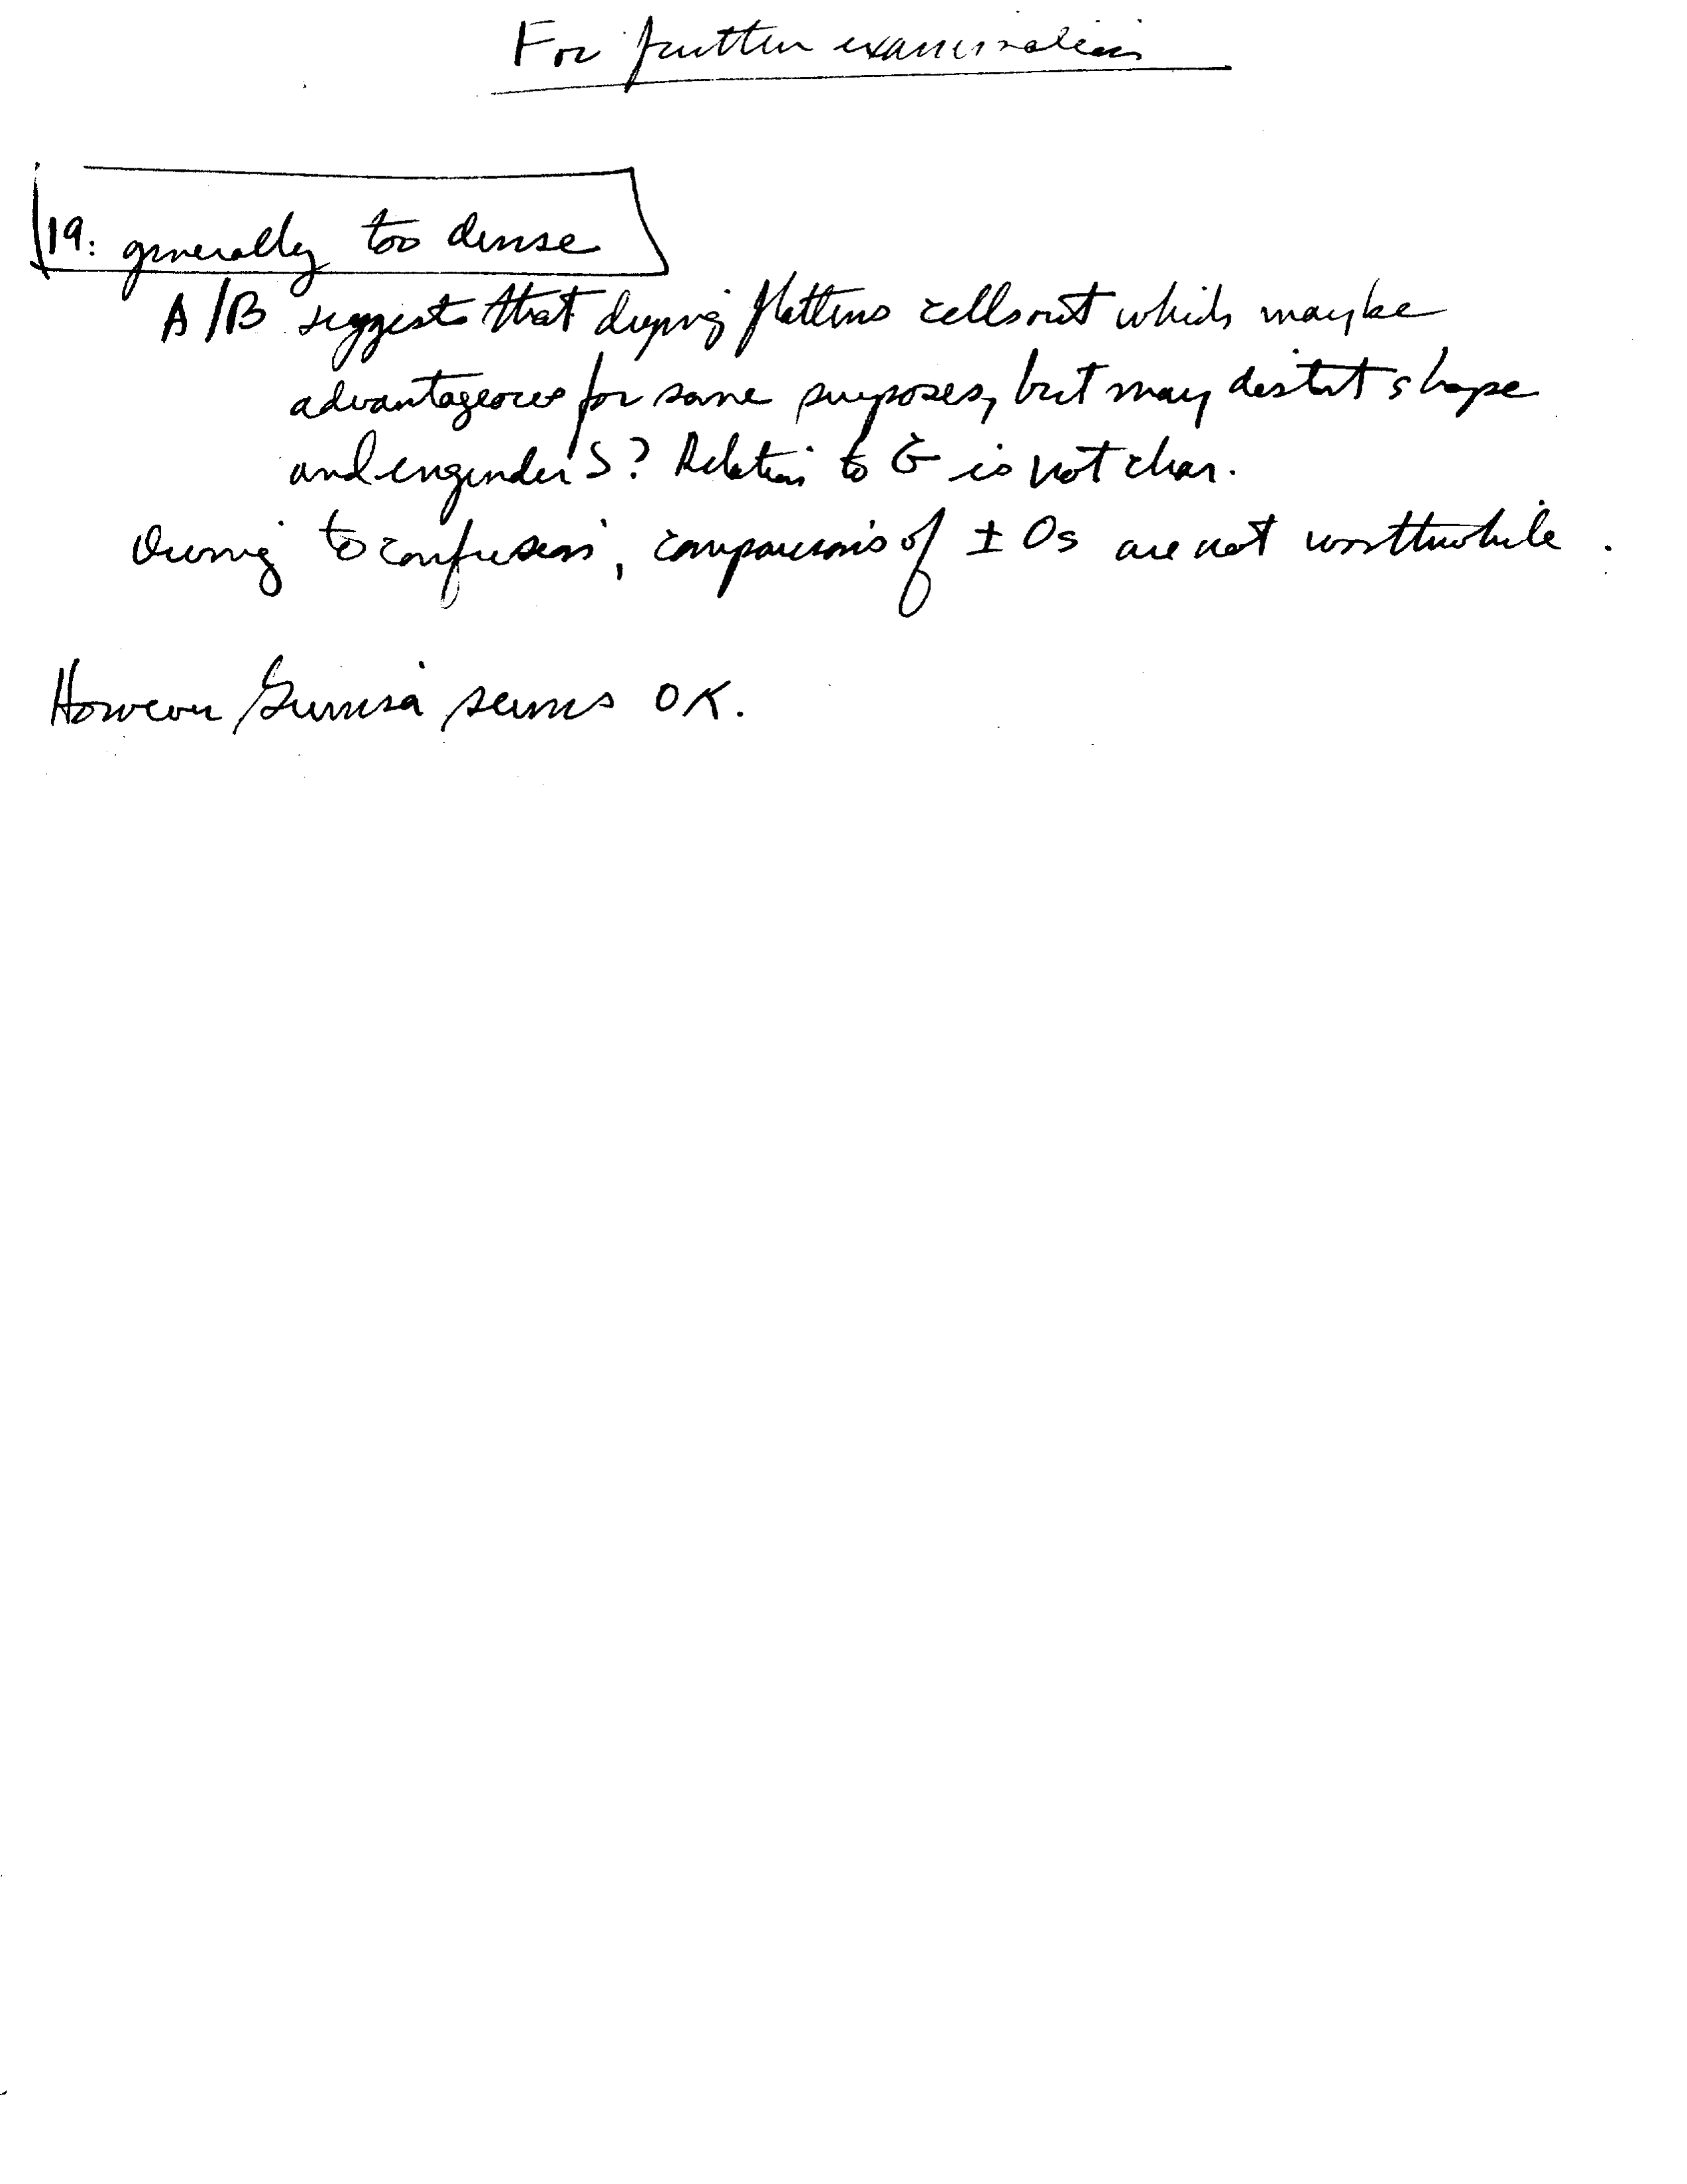 For further examination
19: generally too dense
A/B suggests that drying flattens cells out which may be
advantageous for some purposes, but may distort shape
and engender S? Relation to G is not clear.
Owing to confusion, comparisons of ± Os are not worthwhile.
However Giemsa seems OK.